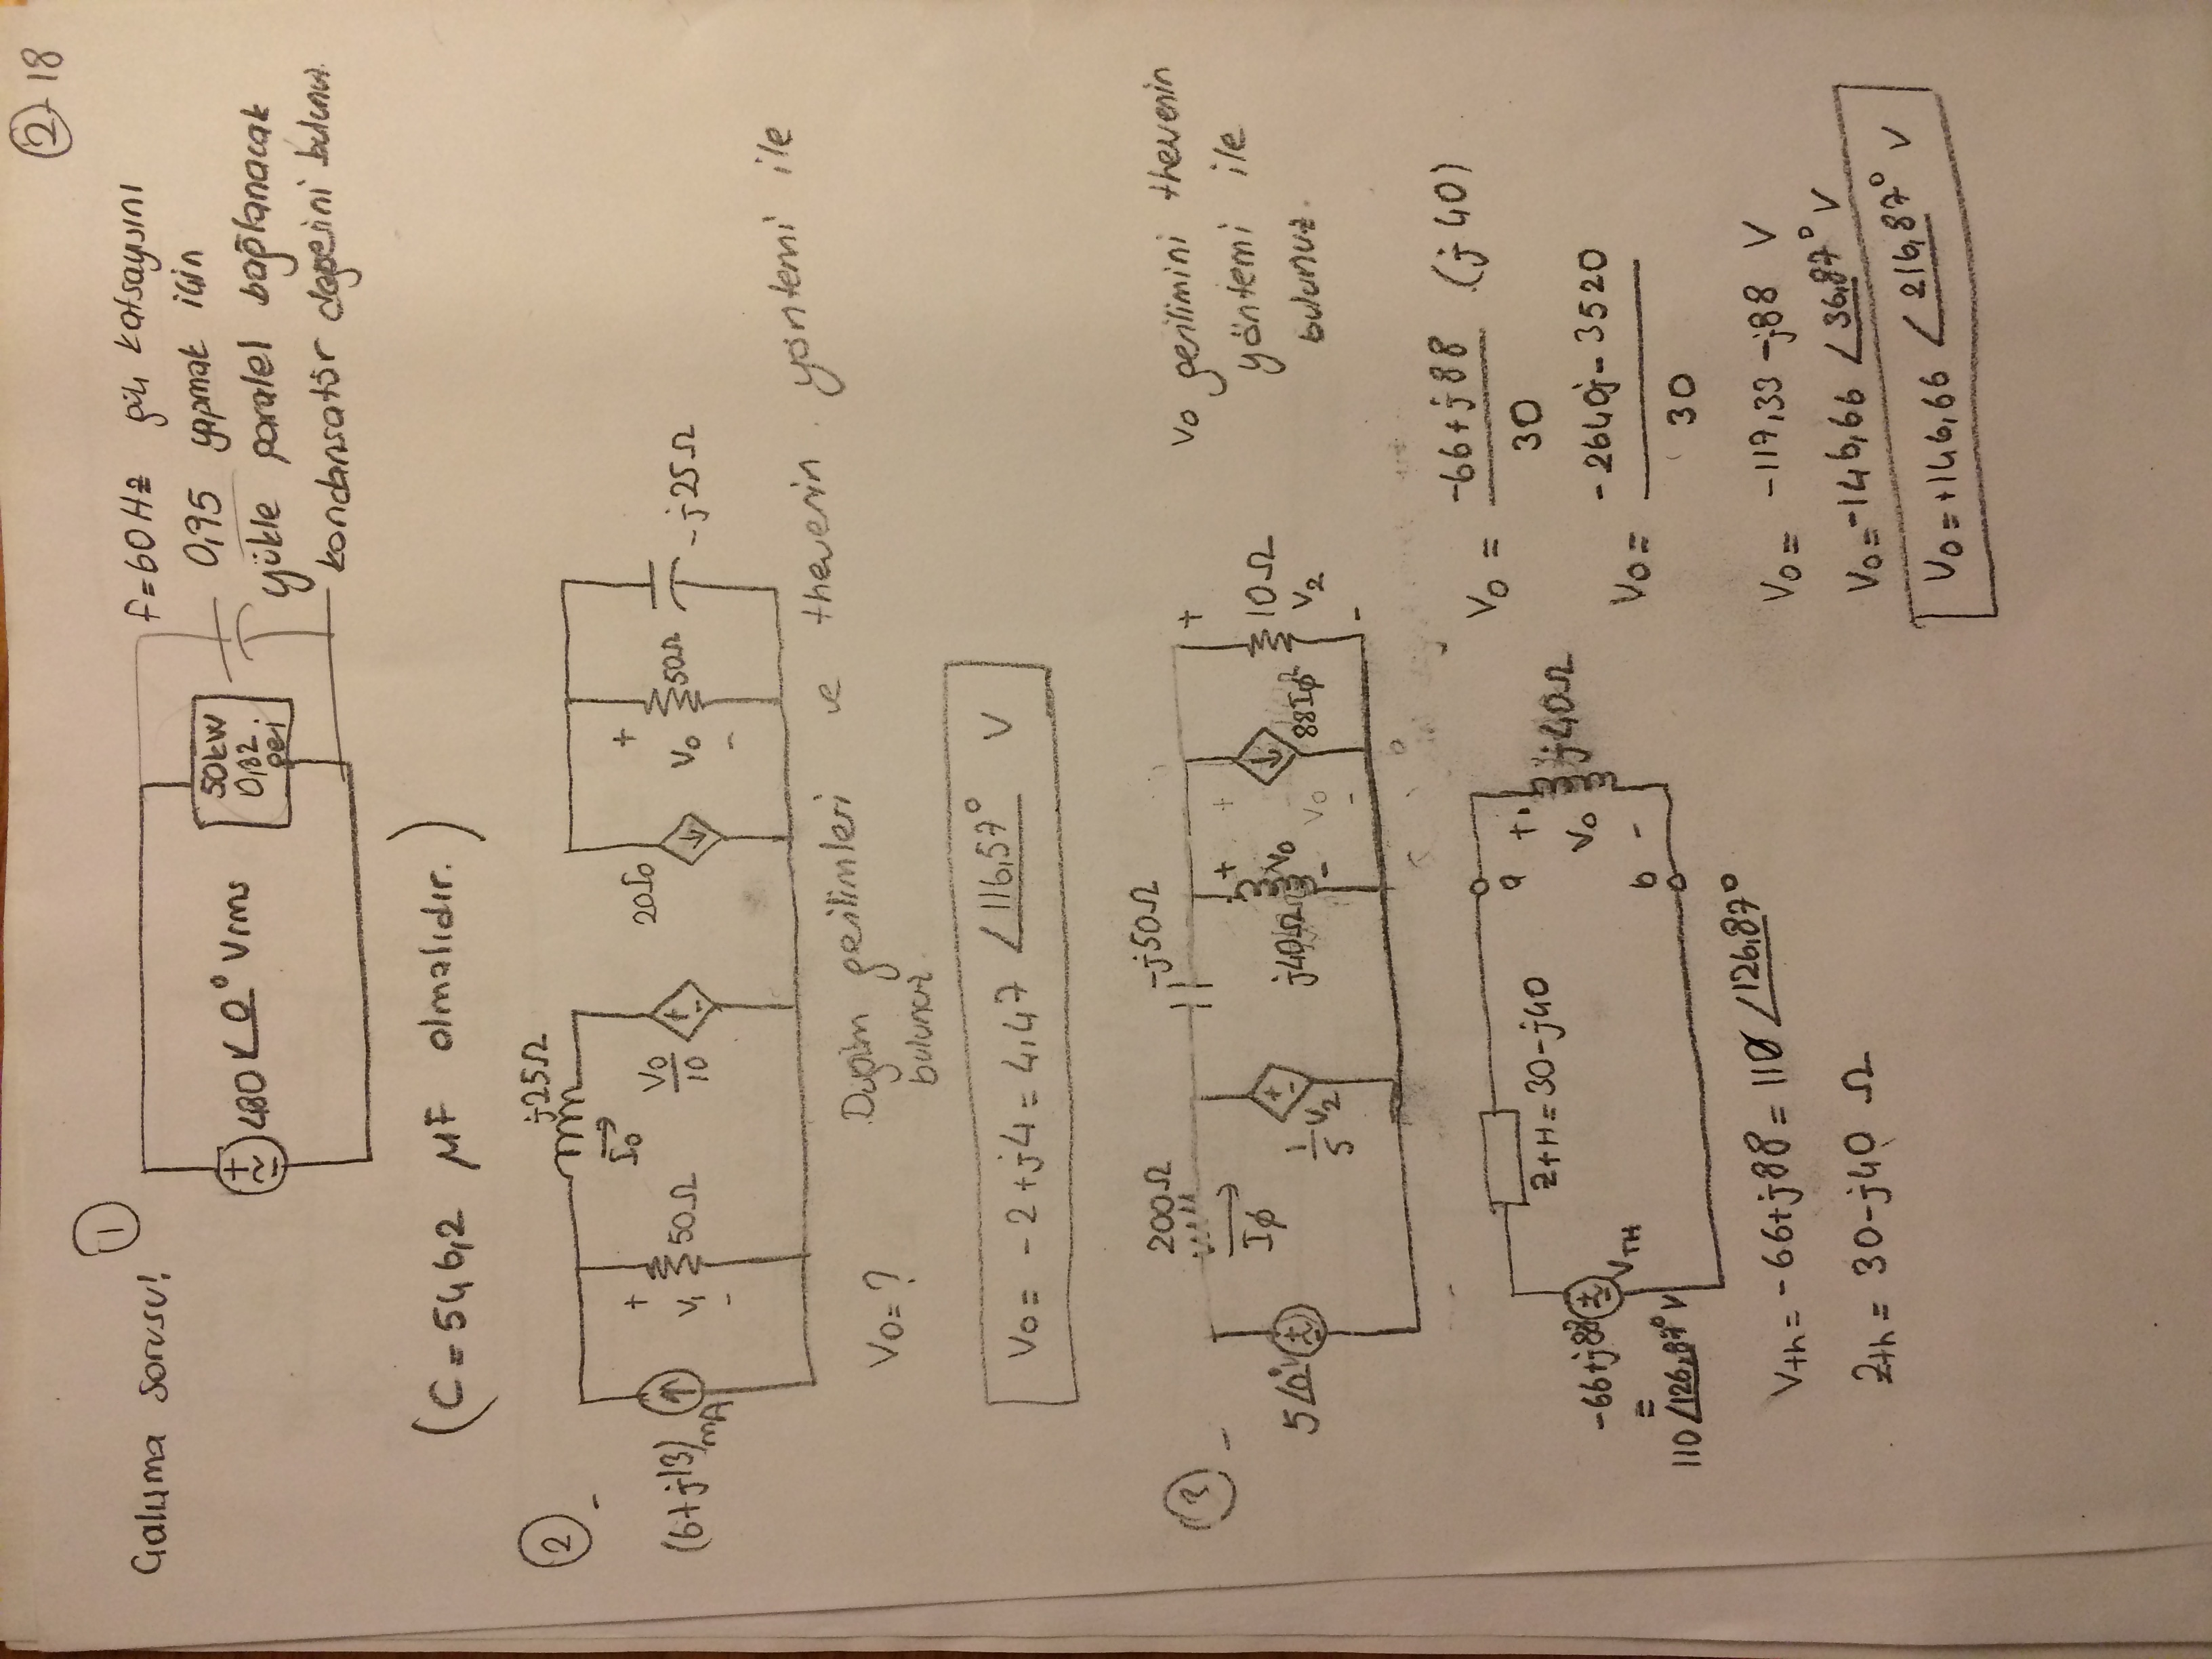 ② - 18
Çalışma sorusu!
①
480 ∠0° Vrms
50kW
0,82
geri
f=60Hz güç katsayısını
0,95 yapmak için
yükle paralel bağlanacak
kondansatör değerini bulunuz.
(C = 546,2 μF olmalıdır.)
② -
(6+j13) mA
+
V1
-
50Ω
j25Ω
I0
V0/10
+
-
20I0
+
V0
-
50Ω
-j25Ω
V0 = ?
Düğüm gerilimleri ve thevenin yöntemi ile
bulunuz.
V0 = -2+j4 = 4,47 ∠116,57° V
③ -
5∠0°
200Ω
Iφ
1/5 V2
+
-
-j50Ω
j40Ω
+
V0
-
+
V0
-
88Iφ
+
10Ω
V2
-
V0 gerilimini thevenin
yöntemi ile
bulunuz.
-66+j88
=
110 ∠126,87° V
VTH
ZtH = 30-j40
a
b
+
V0
-
j40Ω
Vth = -66+j88 = 110 ∠126,87°
Zth = 30-j40 Ω
V0 = -66+j88 / 30 (j40)
V0 = -2640j-3520 / 30
V0 = -117,33-j88 V
V0 = -146,66 ∠36,87° V
V0 = +146,66 ∠216,87° V